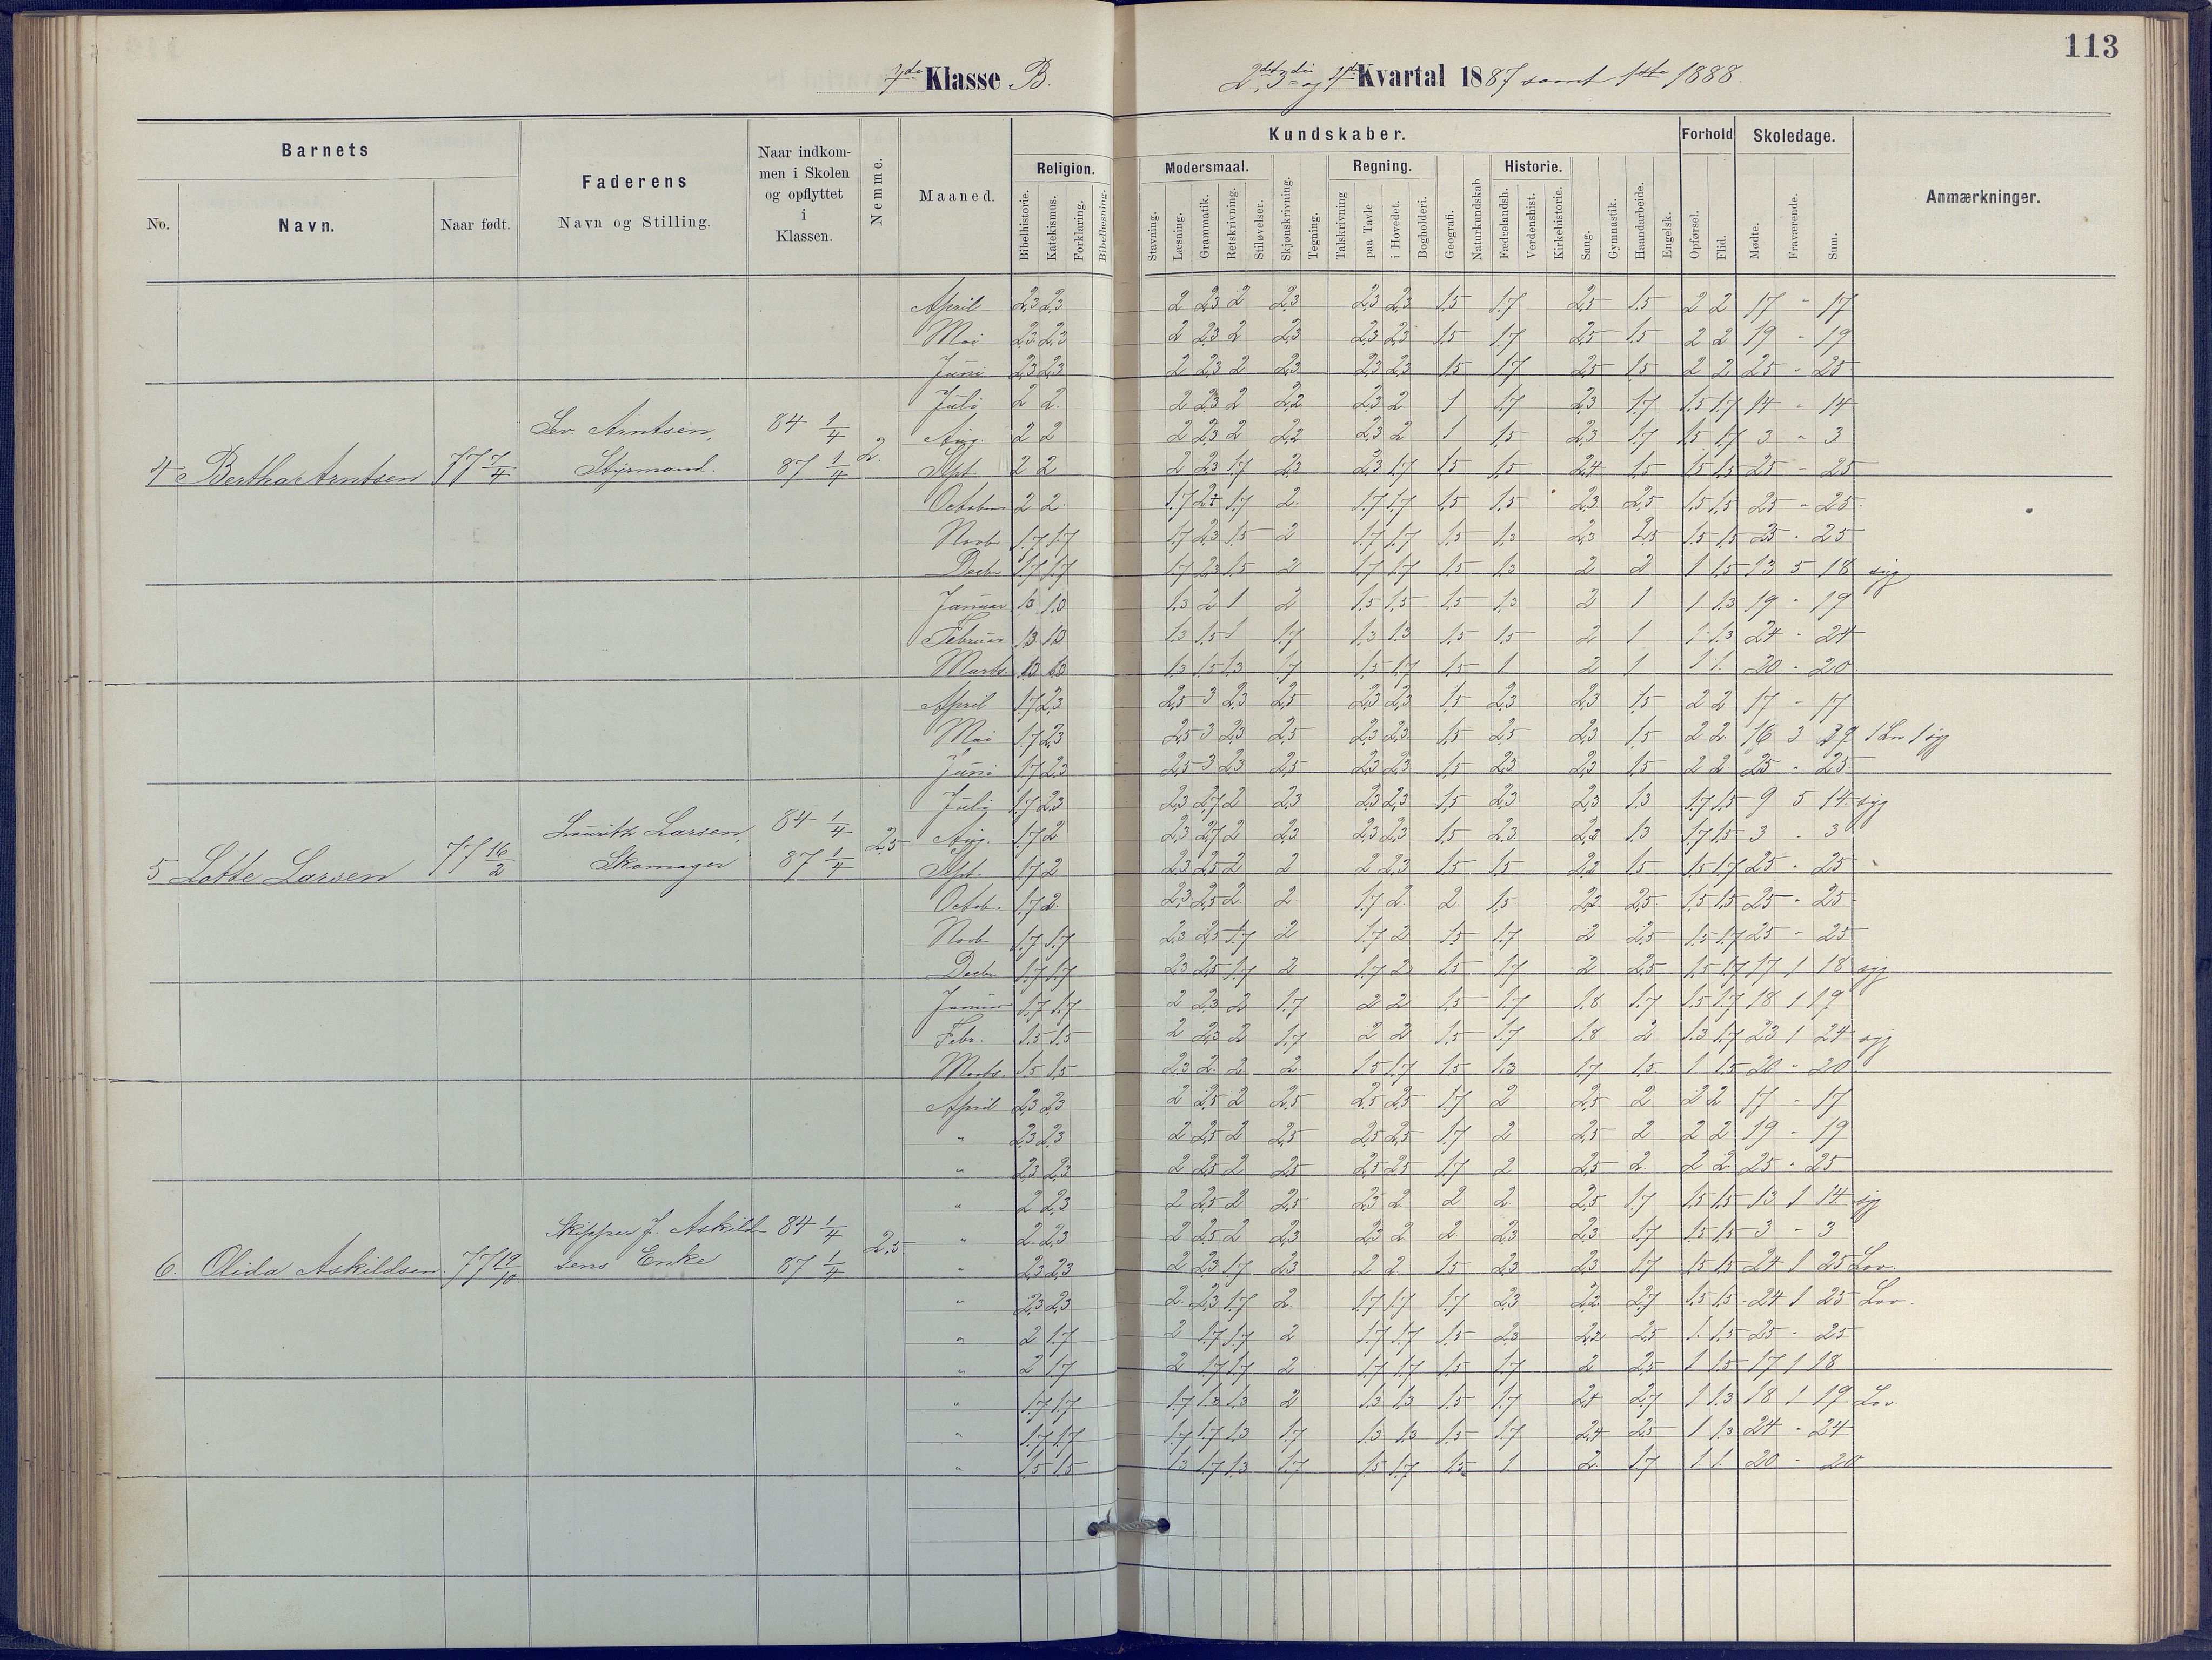 113
Klasse B.
Kvartal 1887 samt 1ste 1888.
Barnets
Faderens
Naar indkom-
men i Skolen
og opflyttet
i
Klassen.
Nemme.
Maaned.
Kundskaber.
Forhold
Skoledage.
Anmærkninger.
No.
Navn.
Naar født.
Navn og Stilling.
Religion.
Modersmaal.
Regning.
Historie.
Bibelhistorie.
Katekismus.
Forklaring.
Bibellæsning.
Stavning.
Læsning.
Grammatik.
Retskrivning.
Stiløvelser.
Skjønskrivning.
Tegning.
Talskrivning
paa Tavle
i Hovedet.
Bogholderi.
Geografi.
Naturkundskab
Fædrelandsh.
Verdenshist.
Kirkehistorie.
Sang.
Gymnastik.
Haandarbeide.
Engelsk.
Opførsel.
Flid.
Mødte.
Fraværende.
Sum.
April 2,3 2,3 2 2,3 2 2,3 2,3 2,3 1,5 1,7 2,5 1,5 2 2 17 - 17
Mai 2,3 2,3 2 2,3 2 2,3 2,3 2,3 1,5 1,7 2,5 1,5 2 2 19 - 19
Juni 2,3 2,3 2 2,3 2 2,3 2,3 2,3 1,5 1,7 2,5 1,5 2 2 25 - 25
July 2 2 2 2,3 2 2,2 2,3 2 1 1,7 2,3 1,7 1,5 1,7 14 - 14
Arntsen, 84 1/4 Aug. 2 2 2 2,3 2 2,2 2,3 2 1 1,5 2,3 1,7 1,5 1,7 3 - 3
4 Bertha Arntsen 77 7/4 Styrmand. 87 1/4 2. Spt. 2 2 2 2,3 1,7 2,3 2,3 1,7 1,5 1,5 2,4 1,5 1,5 1,5 25 - 25
October 2 2 1,7 1,7 2 1,7 1,7 1,5 1,5 2,3 2,5 1,5 1,5 25 - 25
Novb 1,7 1,7 1,7 2,3 1,5 2 1,7 1,7 1,5 1,3 2,3 2,5 1,5 1,5 25 - 25
Decbr 1,7 1,7 1,7 2,3 1,5 2 1,7 1,7 1,5 1,3 2 2 1 1,5 13 5 18 syg
Januar 1,3 1,3 1,3 2 1 2 1,5 1,5 1,5 1,3 2 1 1 1,3 19 - 19
Februar 1,3 1,3 1,3 1,5 1 1,7 1,3 1,3 1,5 1,5 2 1 1 1,3 24 - 24
Marts. 1,3 1,3 1,3 1,5 1,3 1,7 1,5 1,7 1,5 1 2 1 1 1 20 - 20
April 1,7 2,3 2,5 3 2,3 2,5 2,3 2,3 1,5 2,3 2,3 1,5 2 2 17 - 17
Mai 1,7 2,3 2,5 3 2,3 2,5 2,3 2,3 1,5 2,5 2,3 1,5 2 2 16 3 19 1 syg
Juni 1,7 2,3 2,5 3 2,3 2,5 2,3 2,3 1,5 2,3 2,3 1,5 2 2 25 - 25
July 1,7 2,3 2,3 2,7 2 2,3 2,3 2,3 1,5 2,3 2,3 1,3 1,7 1,5 9 5 14 syg
Lauritz Larsen, 84 1/4 Aug. 1,7 2 2,3 2,7 2 2,3 2,3 2,3 1,5 2,3 2,2 1,3 1,7 1,5 3 - 3
5 Lotte Larsen 77 16/2 Skomager 87 1/4 2,5 Spt. 1,7 2 2,3 2,5 2 2 2 2,3 1,5 1,5 2,2 1,5 1,5 1,7 25 - 25
Octobr 1,7 2 2,3 2,5 2 2 1,7 2 2 1,5 2,2 2,5 1,5 1,5 25 - 25
Novb 1,7 1,7 2,3 2,5 1,7 2 1,7 2 1,5 1,7 2 2,5 1,5 1,7 25 - 25
Decbr 1,7 1,7 2,3 2,5 1,7 2 1,7 2 1,5 1,7 2 2,5 1,5 1,7 17 1 18 syg
Januar 1,7 1,7 2 2,3 2 1,7 2 2 1,5 1,7 1,8 1,7 1,5 1,7 18 1 19
Febr. 1,5 1,5 2 2,3 2 1,7 2 2 1,5 1,7 1,8 2 1,3 1,7 23 1 24 syg
Marts. 1,5 1,5 2,3 2 2 2 1,5 1,7 1,5 1,3 1,7 1,5 1 1,5 20 - 20
April 2,3 2,3 2 2,5 2 2,5 2,5 2,5 1,7 2 2,5 2 2 2 17 - 17
" 2,3 2,3 2 2,5 2 2,5 2,5 2,5 1,7 2 2,5 2 2 2 19 - 19
" 2,3 2,3 2 2,5 2 2,5 2,5 2,5 1,7 2 2,5 2 2 2 25 - 25
" 2 2,3 2 2,5 2 2,5 2,3 2 2 2 2,5 1,7 1,5 1,5 13 1 14 syg
Skipper J. Askild- 84 1/4 " 2 2,3 2 2,5 2 2,3 2,3 2 2 2,3 2,3 1,7 1,5 1,5 3 - 3
6. Olida Askildsen. 77 19/10 sens Enke 87 1/4 2,5 " 2,3 2,3 2 2,3 1,7 2,3 2 2 1,5 2,3 2,3 1,7 1,5 1,5 24 1 25 Lov.
" 2,3 2,3 2 2,3 1,7 2 1,7 1,7 1,7 2,3 2,2 2,7 1,5 1,5 24 1 25 Lov.
" 2 1,7 2 1,7 1,7 2 1,7 1,7 1,5 2,3 2,2 2,5 1 1,5 25 - 25
" 2 1,7 2 1,7 1,7 2 1,7 1,7 1,5 1,7 2 2,5 1 1,5 17 1 18
" 1,7 1,7 1,7 1,3 1,3 2 1,3 1,3 1,5 1,7 2,4 2,7 1 1,3 18 1 19 Lov.
" 1,7 1,7 1,7 1,7 1,3 1,7 1,3 1,3 1,5 1,7 2,4 2,5 1 1,3 24 - 24
" 1,5 1,5 1,3 1,7 1,3 1,7 1,5 1,7 1,5 1 2 1,7 1 1 20 - 20